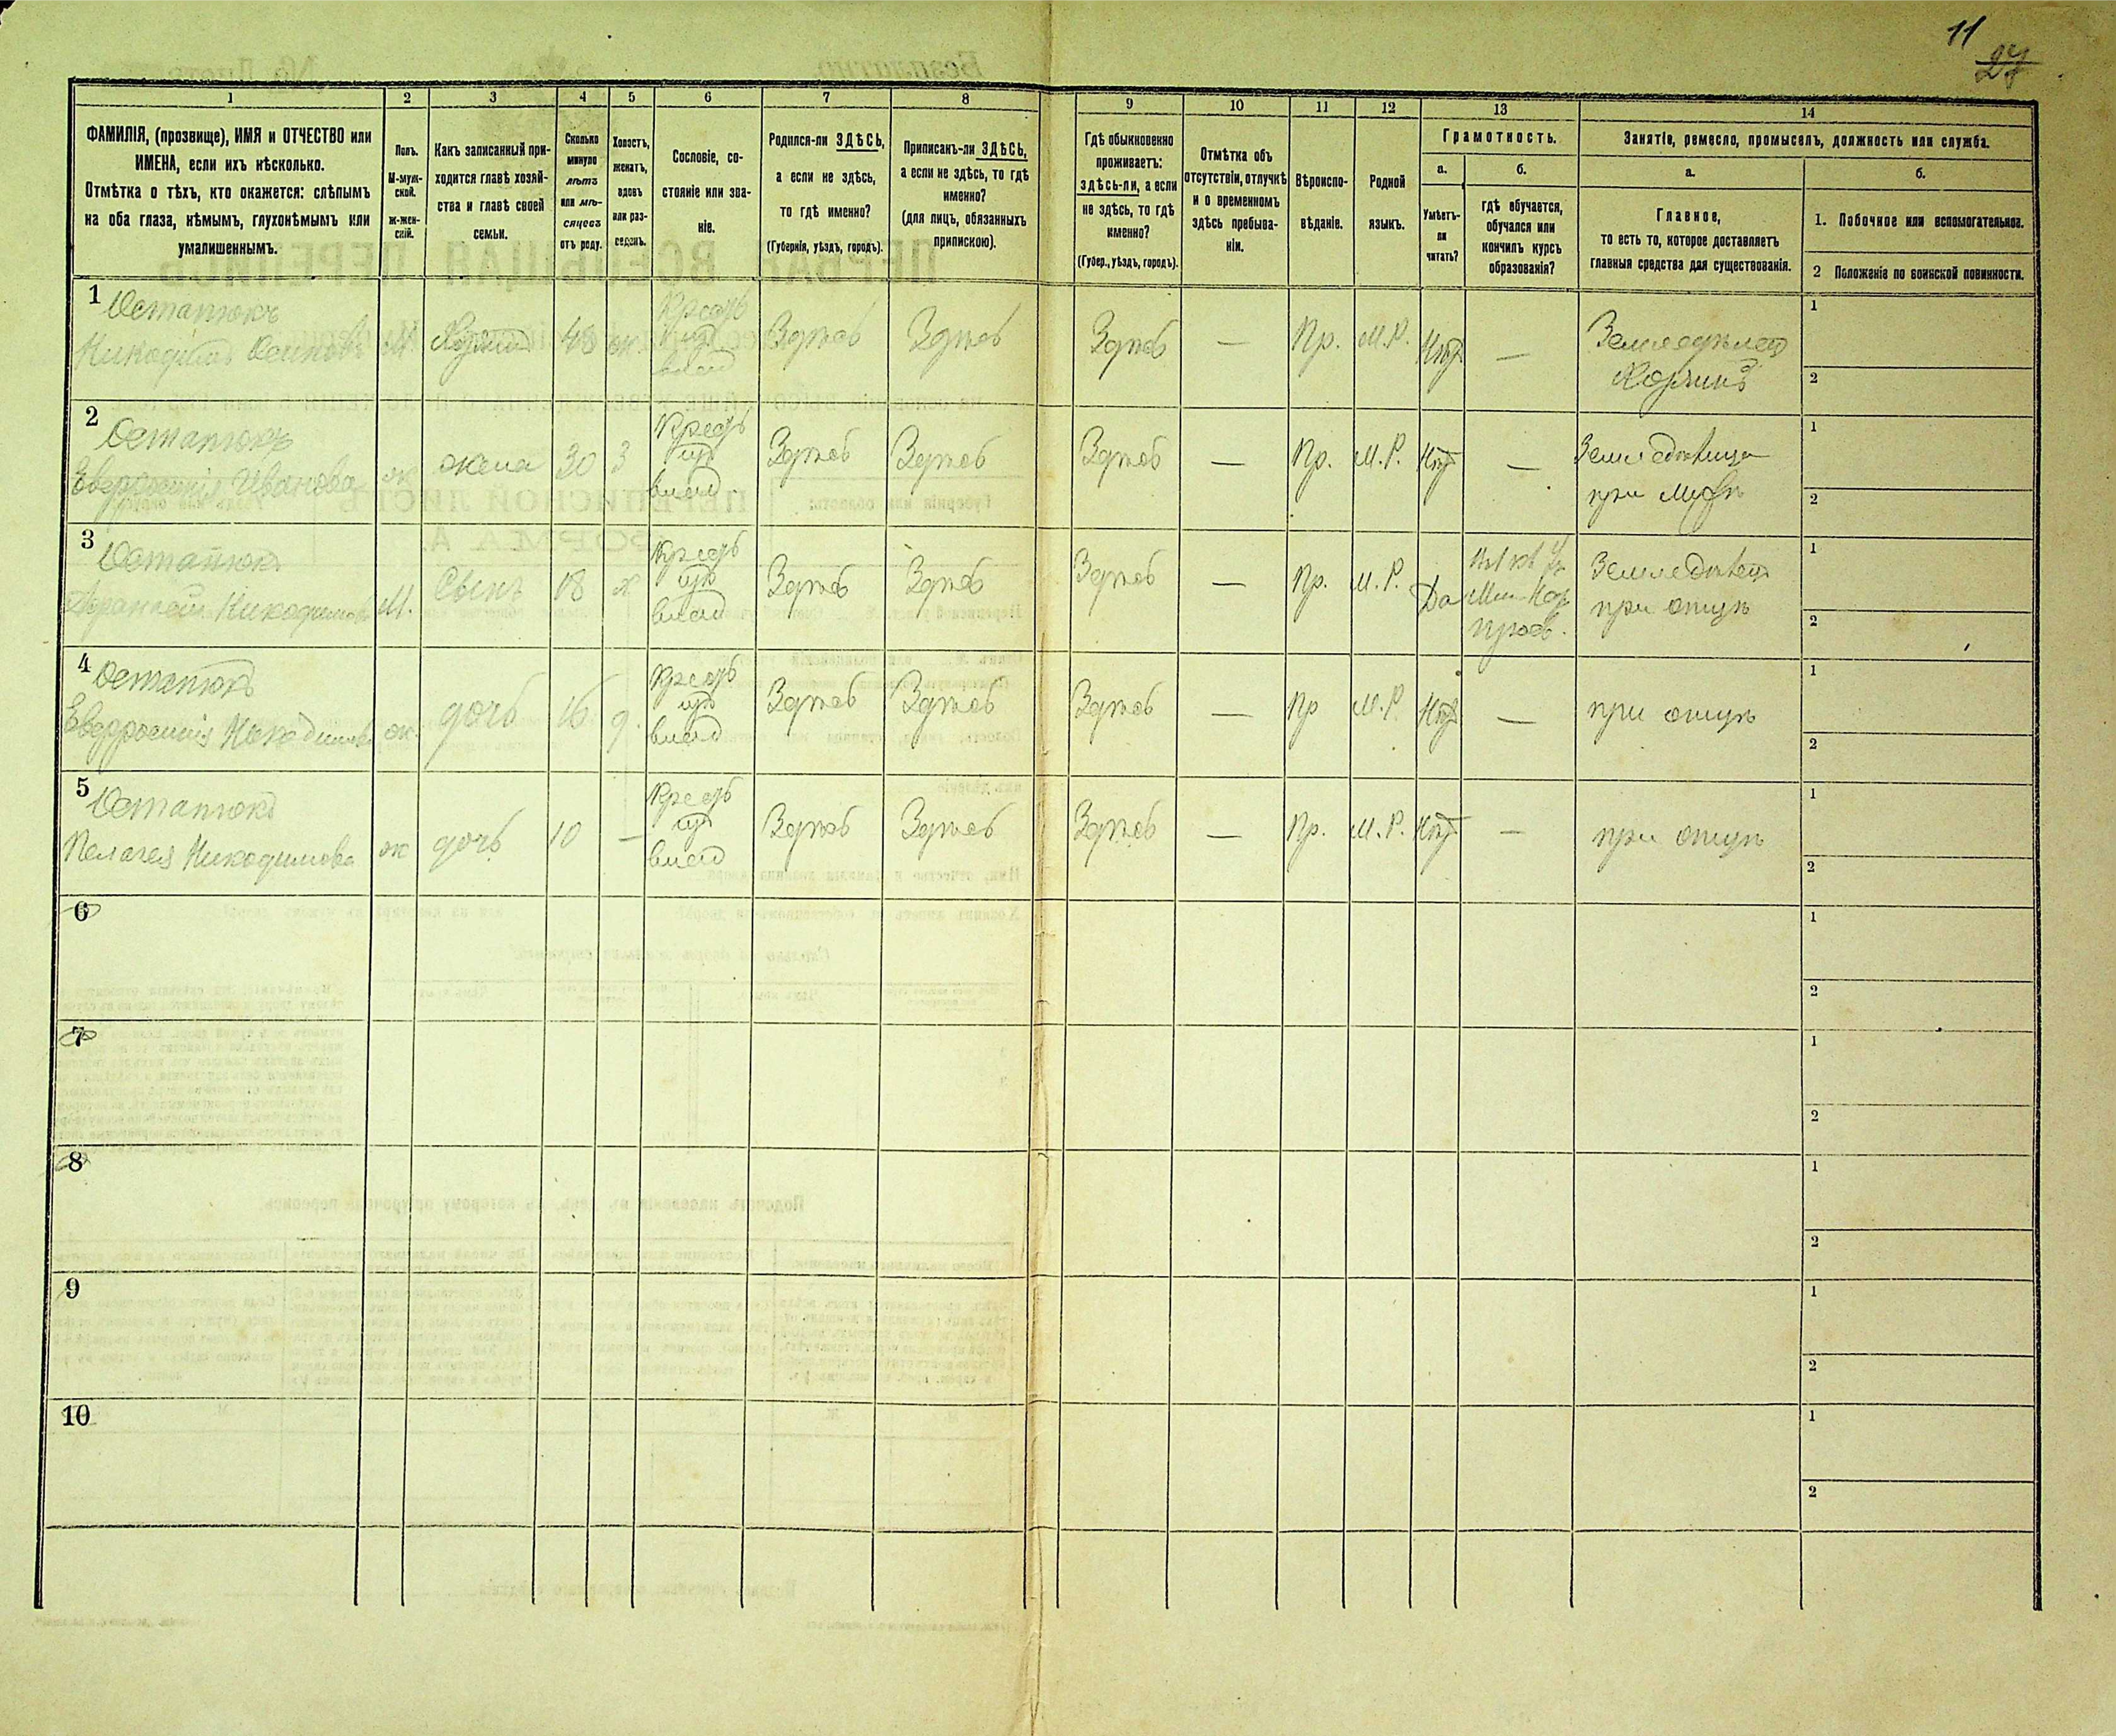 11
27
1 2 3 4 5 6 7 8 9 10 11 12 13 14
ФАМИЛІЯ, (прозвище), ИМЯ и ОТЧЕСТВО или
ИМЕНА, если ихъ нѣсколько.
Отмѣтка о тѣхъ, кто окажется: слѣпымъ
на оба глаза, нѣмымъ, глухонѣмымъ или
умалишеннымъ.
Полъ.
М-муж-
ской.
ж-жен-
скій.
Какъ записанный при-
ходится главѣ хозяй-
ства и главѣ своей
семьи.
Сколько
минуло
лѣтъ
или мѣ-
сяцевъ
отъ роду.
Холостъ,
женатъ,
вдовъ
или раз-
веденъ.
Сословіе, со-
стояніе или зва-
ніе.
Родился-ли ЗДѢСЬ,
а если не здѣсь,
то гдѣ именно?
(Губернія, уѣздъ, городъ).
Приписанъ-ли ЗДѢСЬ,
а если не здѣсь, то гдѣ
именно?
(для лицъ, обязанныхъ
припискою).
Гдѣ обыкновенно
проживаетъ:
здѣсь-ли, а если
не здѣсь, то гдѣ
именно?
(Губер., уѣздъ, городъ).
Отмѣтка объ
отсутствіи, отлучкѣ
и о временномъ
здѣсь пребыва-
ніи.
Вѣроиспо-
вѣданіе.
Родной
языкъ.
Грамотность.
а.
Умѣетъ-
ли
читать?
б.
гдѣ обучается,
обучался или
кончилъ курсъ
образованія?
Занятіе, ремесло, промыселъ, должность или служба.
а.
Главное,
то есть то, которое доставляетъ
главныя средства для существованія.
б.
1. Побочное или вспомогательное.
2 Положеніе по воинской повинности.
1
Остапюкъ
Никодимъ
М
48
ж.
Крестъ
влад
Здѣсь
Здѣсь
Здѣсь
—
Пр.
М.Р.
Нѣт
—
Земледѣлец
1
2
2
Остапюкъ
Евфросинія Иванова
ж
жена
30
З
Крестъ
влад
Здѣсь
Здѣсь
Здѣсь
—
Пр.
М.Р.
Нѣт
—
при мужѣ
1
2
3
Остапюкъ
Никодимовъ
М.
Сынъ
18
х
Крестъ
влад
Здѣсь
Здѣсь
Здѣсь
—
Пр.
М.Р.
Да
Мин. Нар
просв.
Земледѣлец
при отцѣ
1
2
4
Остапюкъ
Евфросинія Никодимова
ж.
дочь
16
д.
Крестъ
влад
Здѣсь
Здѣсь
Здѣсь
—
Пр
М.Р.
Нѣт
—
при отцѣ
1
2
5
Остапюкъ
Пелагея Никодимова
ж
дочь
10
—
Крестъ
влад
Здѣсь
Здѣсь
Здѣсь
—
Пр.
М.Р.
Нѣт
—
при отцѣ
1
2
6
1
2
7
1
2
8
1
2
9
1
2
10
1
2